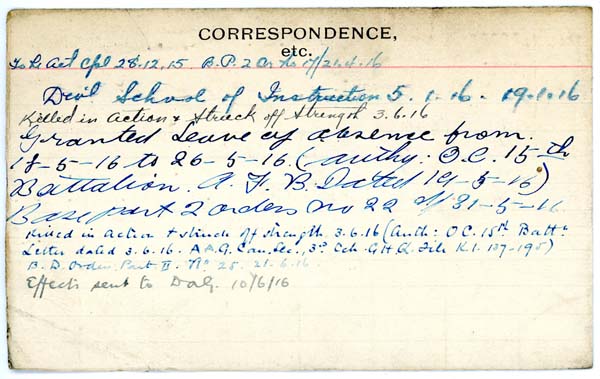 CORRESPONDENCE,
etc.
To be Act Cpl 28.12.15 B.P.2 Or No 17/21.4.16
Div'l School of Instruction 5.1.16 - 19.1.16
Killed in Action & Struck off Strength 3.6.16
Granted Leave of absence from.
18-5-16 to 26-5-16. (authy: O.C. 15th
Battalion. A.F.B. Dated 19-5-16)
Base part 2 orders no 22 of 31-5-16
Killed in action & struck off strength 3.6.16 (Auth: OC. 15th Battn
Letter dated 3.6.16. A.A.G. Can. Sec., 3rd Ech. G.H.Q. File K.1. 107-195)
B.D. Orders Part II. No 25. 21.6.16.
Effects sent to 10/6/16